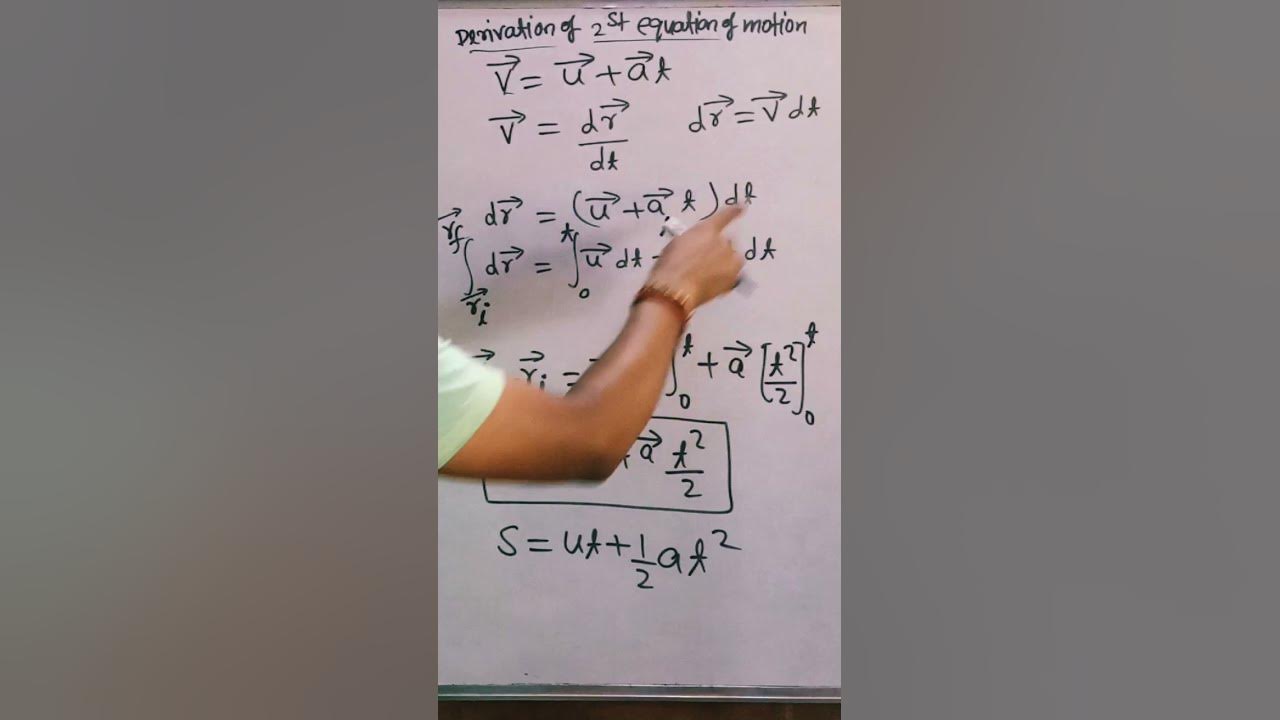 Derivation of 2st equation of motion
V⃗ = u⃗ + a⃗ t
V⃗ = dr⃗/dt dr⃗ = V⃗ dt
dr⃗ = (u⃗ + a⃗ t) dt
∫_{r⃗i}^{r⃗f} dr⃗ = ∫_0^t u⃗ dt dt
r⃗i = ]_0^t + a⃗ [t²/2]_0^t
a⃗ t²/2
S = ut + 1/2 at²